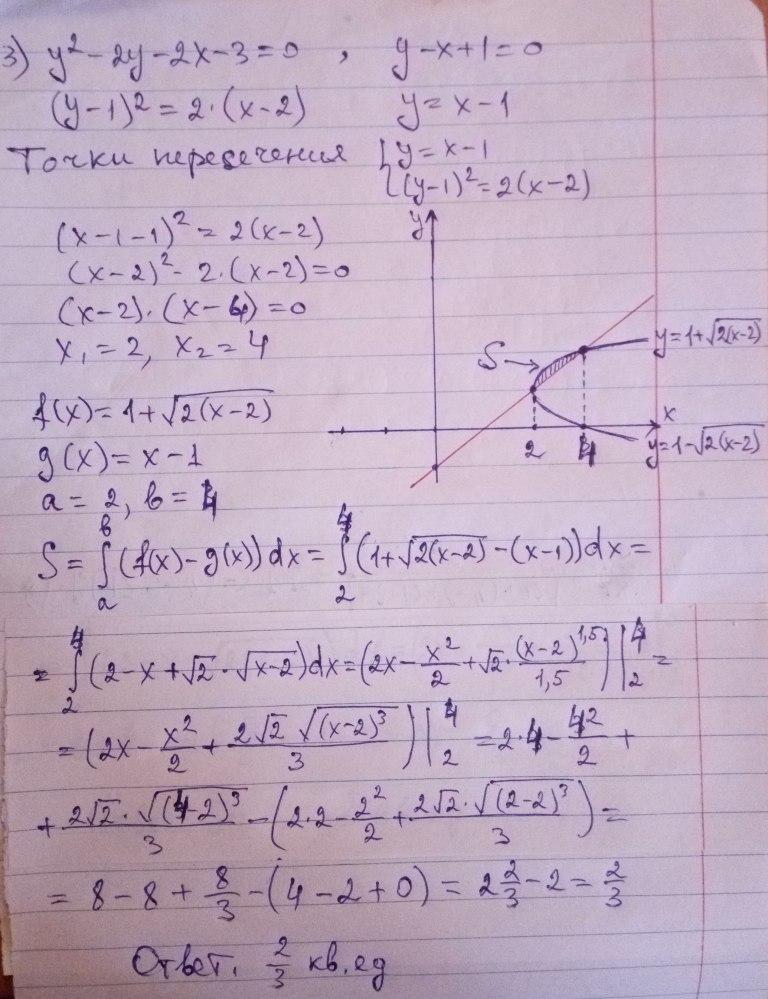 3) y² - 2y - 2x - 3 = 0 , y - x + 1 = 0
(y-1)² = 2·(x-2) y = x - 1
Точки пересечения { y = x - 1
{ (y-1)² = 2(x-2)
(x-1-1)² = 2(x-2)
(x-2)² - 2·(x-2) = 0
(x-2)·(x-4) = 0
x₁ = 2, x₂ = 4
y
S
y = 1+√(2(x-2))
x
2 4
y = 1-√(2(x-2))
f(x) = 1+√(2(x-2))
g(x) = x - 1
a = 2, b = 4
S = ∫ₐᵇ (f(x) - g(x)) dx = ∫₂⁴ (1+√(2(x-2)) - (x-1)) dx =
= ∫₂⁴ (2 - x + √2·√(x-2)) dx = (2x - x²/2 + √2·(x-2)^1,5/1,5) |₂⁴ =
= (2x - x²/2 + 2√2 √((x-2)³)/3) |₂⁴ = 2·4 - 4²/2 +
+ 2√2·√((4-2)³)/3 - (2·2 - 2²/2 + 2√2·√((2-2)³)/3) =
= 8 - 8 + 8/3 - (4 - 2 + 0) = 2 2/3 - 2 = 2/3
Ответ. 2/3 кв.ед